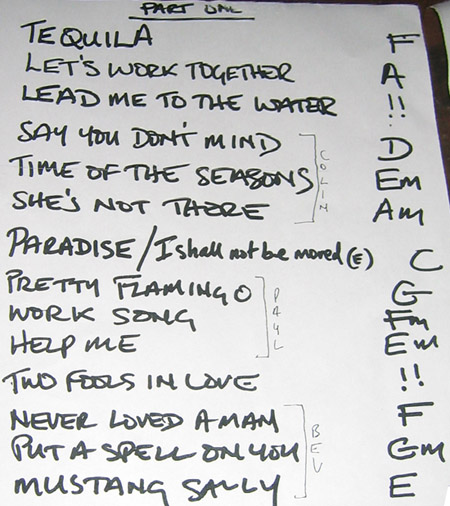 PART ONE
TEQUILA F
LET'S WORK TOGETHER A
LEAD ME TO THE WATER !!
SAY YOU DON'T MIND D
TIME OF THE SEASONS COLIN Em
SHE'S NOT THERE Am
PARADISE / I shall not be moved (E) C
PRETTY FLAMINGO G
WORK SONG PAUL Fm
HELP ME Em
TWO FOOLS IN LOVE !!
NEVER LOVED A MAN F
PUT A SPELL ON YOU BEV Gm
MUSTANG SALLY E